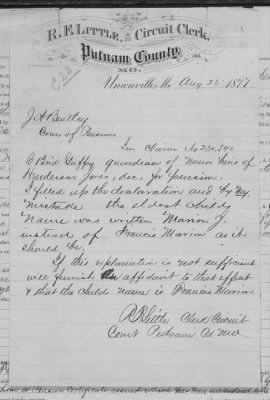 R. F. LITTLE, Circuit Clerk,
Putnam County,
MO.
Unionville, Mo. Aug 22 1877
J A Bentley
Com of Pensions
In Claim No 230,340
Guffy guardian of minor heirs of
Anderson Jones, dec. for pension.
I filled up the declaration and by my
mistake the eldest childs
name was written Marion J.
instead of Francis Marion as it
should be.
If this explanation is not sufficient
will furnish an affidavit to that effect
& that the child name is Francis Marion
R F Little Clerk Circuit
Court Putnam Co Mo